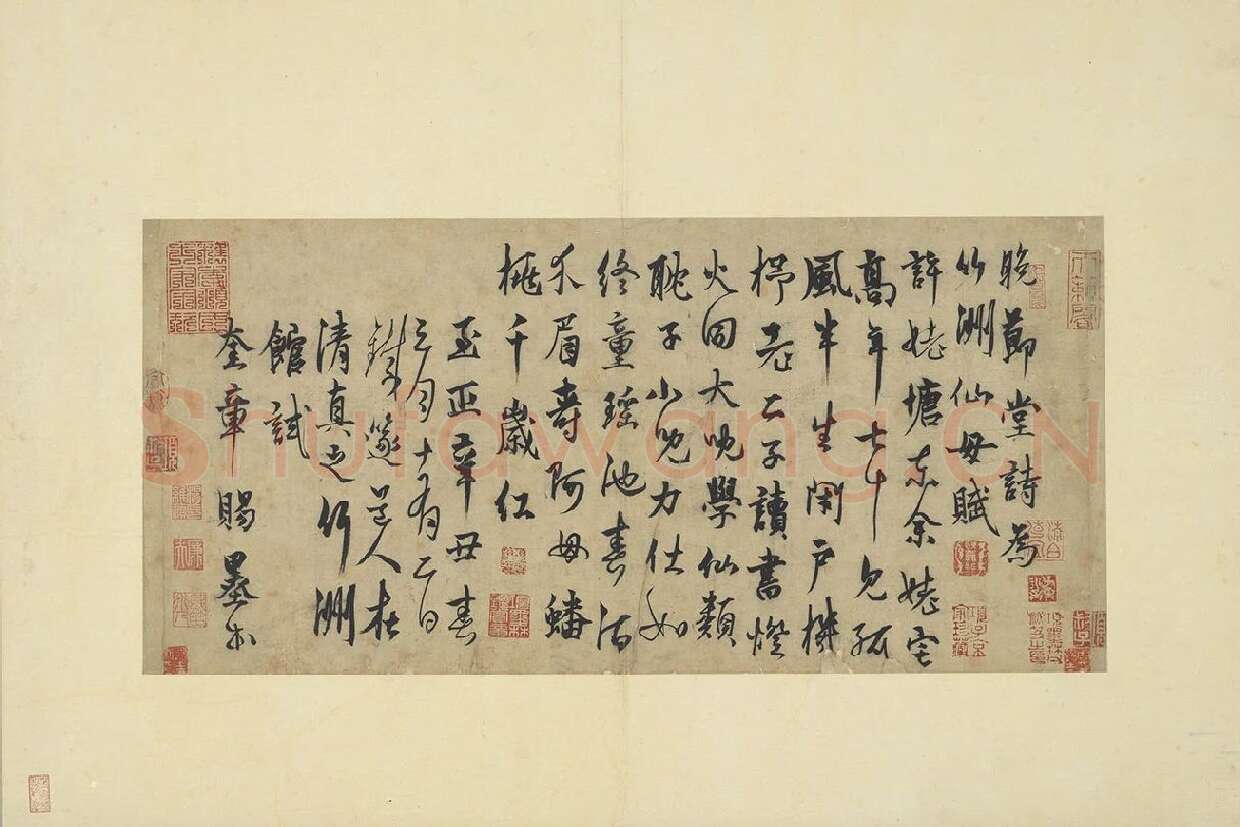 晚節堂詩為
竹洲仙母賦
許姥塘東余姥宅
高年七十見孤
風半生閉戶機
杼老二子讀書燈
火同大兒學仙類
耽子小兒力仕如
終童瑤池春滿
介眉壽阿母蟠
桃千歲紅
至正辛丑春
三月十有二日
鐵篴道人在
清真之竹洲
館試
奎章賜墨書
Shufawang.CN